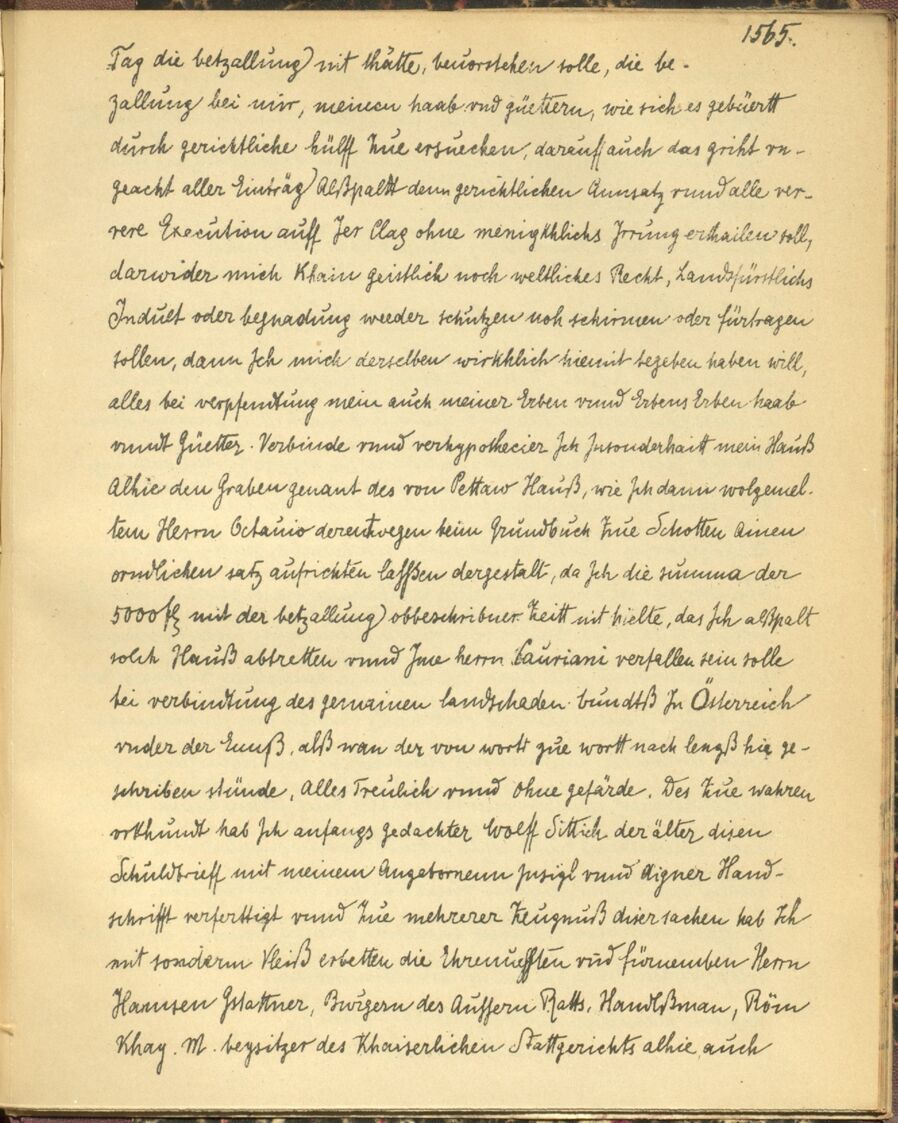 1565.
Tag die betzallung) nit thätte, beuorstehen solle, die be-
zallung bei mir, meinen haab vnd güettern, wie sich es gebüertt
durch gerichtliche hülff Zue ersuechen, darauff auch das griht vn-
geacht aller Einträg) Alßpaltt denn gerichtlichen Annsatz vnnd alle ver-
rere Execution auff Jer Clag ohne menigkhlichs Jrrung erthailen soll,
darwider mich Khain geistlich noch weltliches Recht, Landsfürstlichs
Jndult oder begnadung weeder schutzen noh schirmen oder fürtragen
sollen, dann Jch mich derselben wirkhlich hiemit begeben haben will,
alles bei verpfendtung mein auch meiner Erben vnnd Erbens Erben haab
vnndt Güetter. Verbinde vnnd verhypothecier Jch Jnsonderhaitt mein Hauß
Alhie den Graben genant des von Pettaw Hauß, wie Jch dann wolgemel-
tem Herrn Octauio derentwegen beim Grundbuch Zue Schotten Ainen
orndlichen satz aufrichten lassen dergestalt, da Jch die summa der
5000 fl mit der betzallung) obbeschribner Zeitt nit hielte, das Jch alßpalt
solch Hauß abtretten vnnd Jme herrn Cauriani verfallen sein solle
bei verbindtung des gemainen landschaden bundtß Jn Österreich
vnder der Ennß, alß wan der von wortt zue wortt nach lengß hie ge-
schriben stünde, Alles Treulich vnnd ohne gefärde. Des Zue wahren
vrkhundt hab Jch anfangs gedachter Wolff Sittich der älter disen
Schuldbrieff mit meinem Angebornenn Jnsigl vnnd Aigner Hand-
schrifft verferttigt vnnd Zue mehrerer Zeugnuß diser sachen hab Jch
mit sonderm Vleiß erbetten die Ehrnuefften vnd fürnemben Herrn
Hannsen Gstattner, Burgern des Aussern Ratts, Handlßman, Röm
Khay. M. beysitzer des Khaiserlichen Stattgerichts alhie, auch